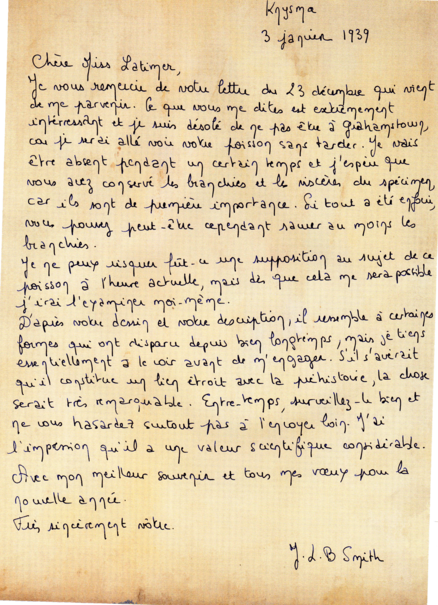 Knysma
3 janvier 1939
Chère Miss Latimer,
Je vous remercie de votre lettre du 23 décembre qui vient
de me parvenir. Ce que vous me dites est extrêmement
intéressant et je suis désolé de ne pas être à Grahamstown,
car je serai allé voir votre poisson sans tarder. Je vais
être absent pendant un certain temps et j'espère que
vous avez conservé les branchies et les viscères du spécimen,
car ils sont de première importance. Si tout a été enfoui,
vous pouvez peut-être cependant sauver au moins les
branchies.
Je ne peux risquer fût-ce une supposition au sujet de ce
poisson à l'heure actuelle, mais dès que cela me sera possible
j'irai l'examiner moi-même.
D'après votre dessin et votre description, il ressemble à certaines
formes qui ont disparu depuis bien longtemps, mais je tiens
essentiellement a le voir avant de m'engager. S'il s'avérait
qu'il constitue un lien étroit avec la préhistoire, la chose
serait très remarquable. Entre-temps, surveillez-le bien et
ne vous hasardez surtout pas à l'envoyer loin. J'ai
l'impression qu'il a une valeur scientifique considérable.
Avec mon meilleur souvenir et tous mes vœux pour la
nouvelle année.
Très sincèrement vôtre.
J.L.B Smith